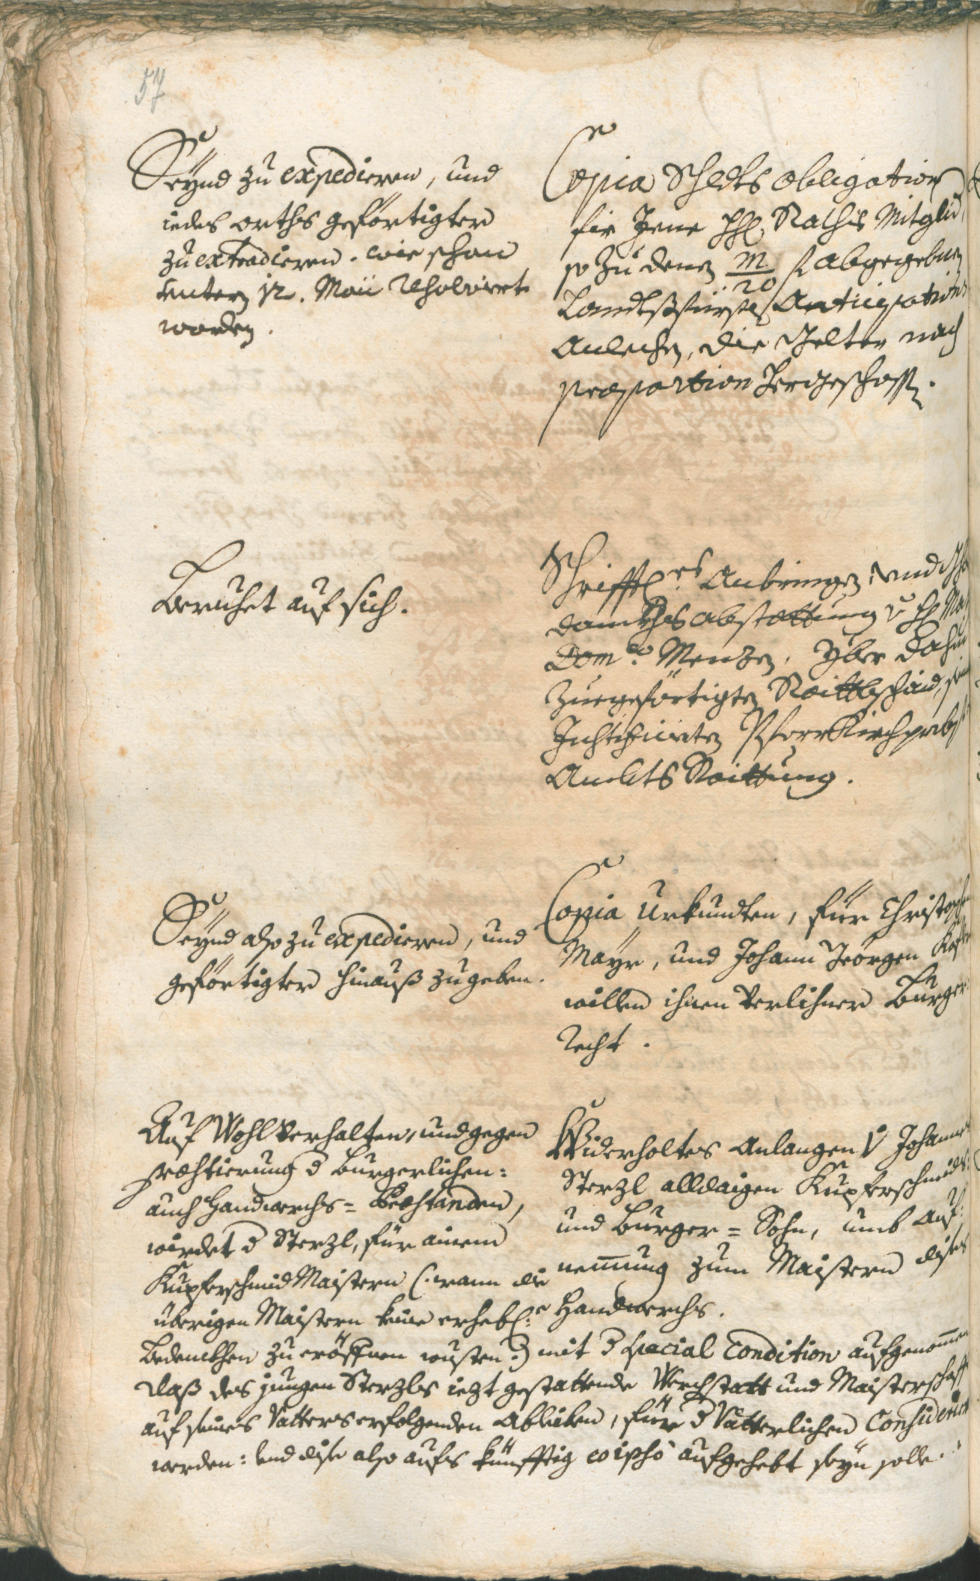 57
Seynd zu expedieren, und
iedes orths geförtigter
zu extradieren. wie schon
untern 12. Maii resolvirt
worden.
Copia Schldts obligation
für Jene HH. Raths Mitglid,
so zu denen m/20 f abgegebnen
Landtsfürstl. Anticipations
Anlechen, die Gelter nach
proportion hergeschossen.
Beruhet auf sich.
Schrifftl.es Anbringen, und
danckhs abstattung v H.
Dom.co Menzen, yber dahin
zuegeförtigten Raittbschaid,
Justificierten PfarrKirchprobst
Ambts Raittung.
Seynd also zu expedieren, und
geförtigter hinauß zugeben.
Copia Urkundten, für Christoph
Mayr, und Johann Jeorgen
willen ihnen verlichner Burger
recht.
Auf Wohlverhalten, und gegen
præstierung d Burgerlichen:
auch Handwerchs= Præstanden,
wirdet d Sterzl, für ainem
Kupferschmid Maistern (: wann die
übrigen Maistern keine erhebl:e
Bedenckhen zu eröffnen wusten :) mit d special Condition aufgenommen
daß des jungen Sterzls iezt gestattende Werchstatt und Maisterschafft
auf seines Vatters erfolgenden Ableiben, für d Vätterlichen Consideriert
werden: und dise also aufs künfftig eo ipso aufgehebt seyn solle.
Widerholtes Anlangen v Johann
Sterzl alldaigen Kupferschmidt:
und Burger= Sohn, umb Auf:
nemmung zum Maistern dises
Handwerchs.